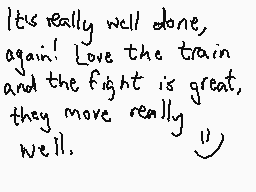 It's really well done,
again! Love the train
and the fight is great,
they move really
well. =)